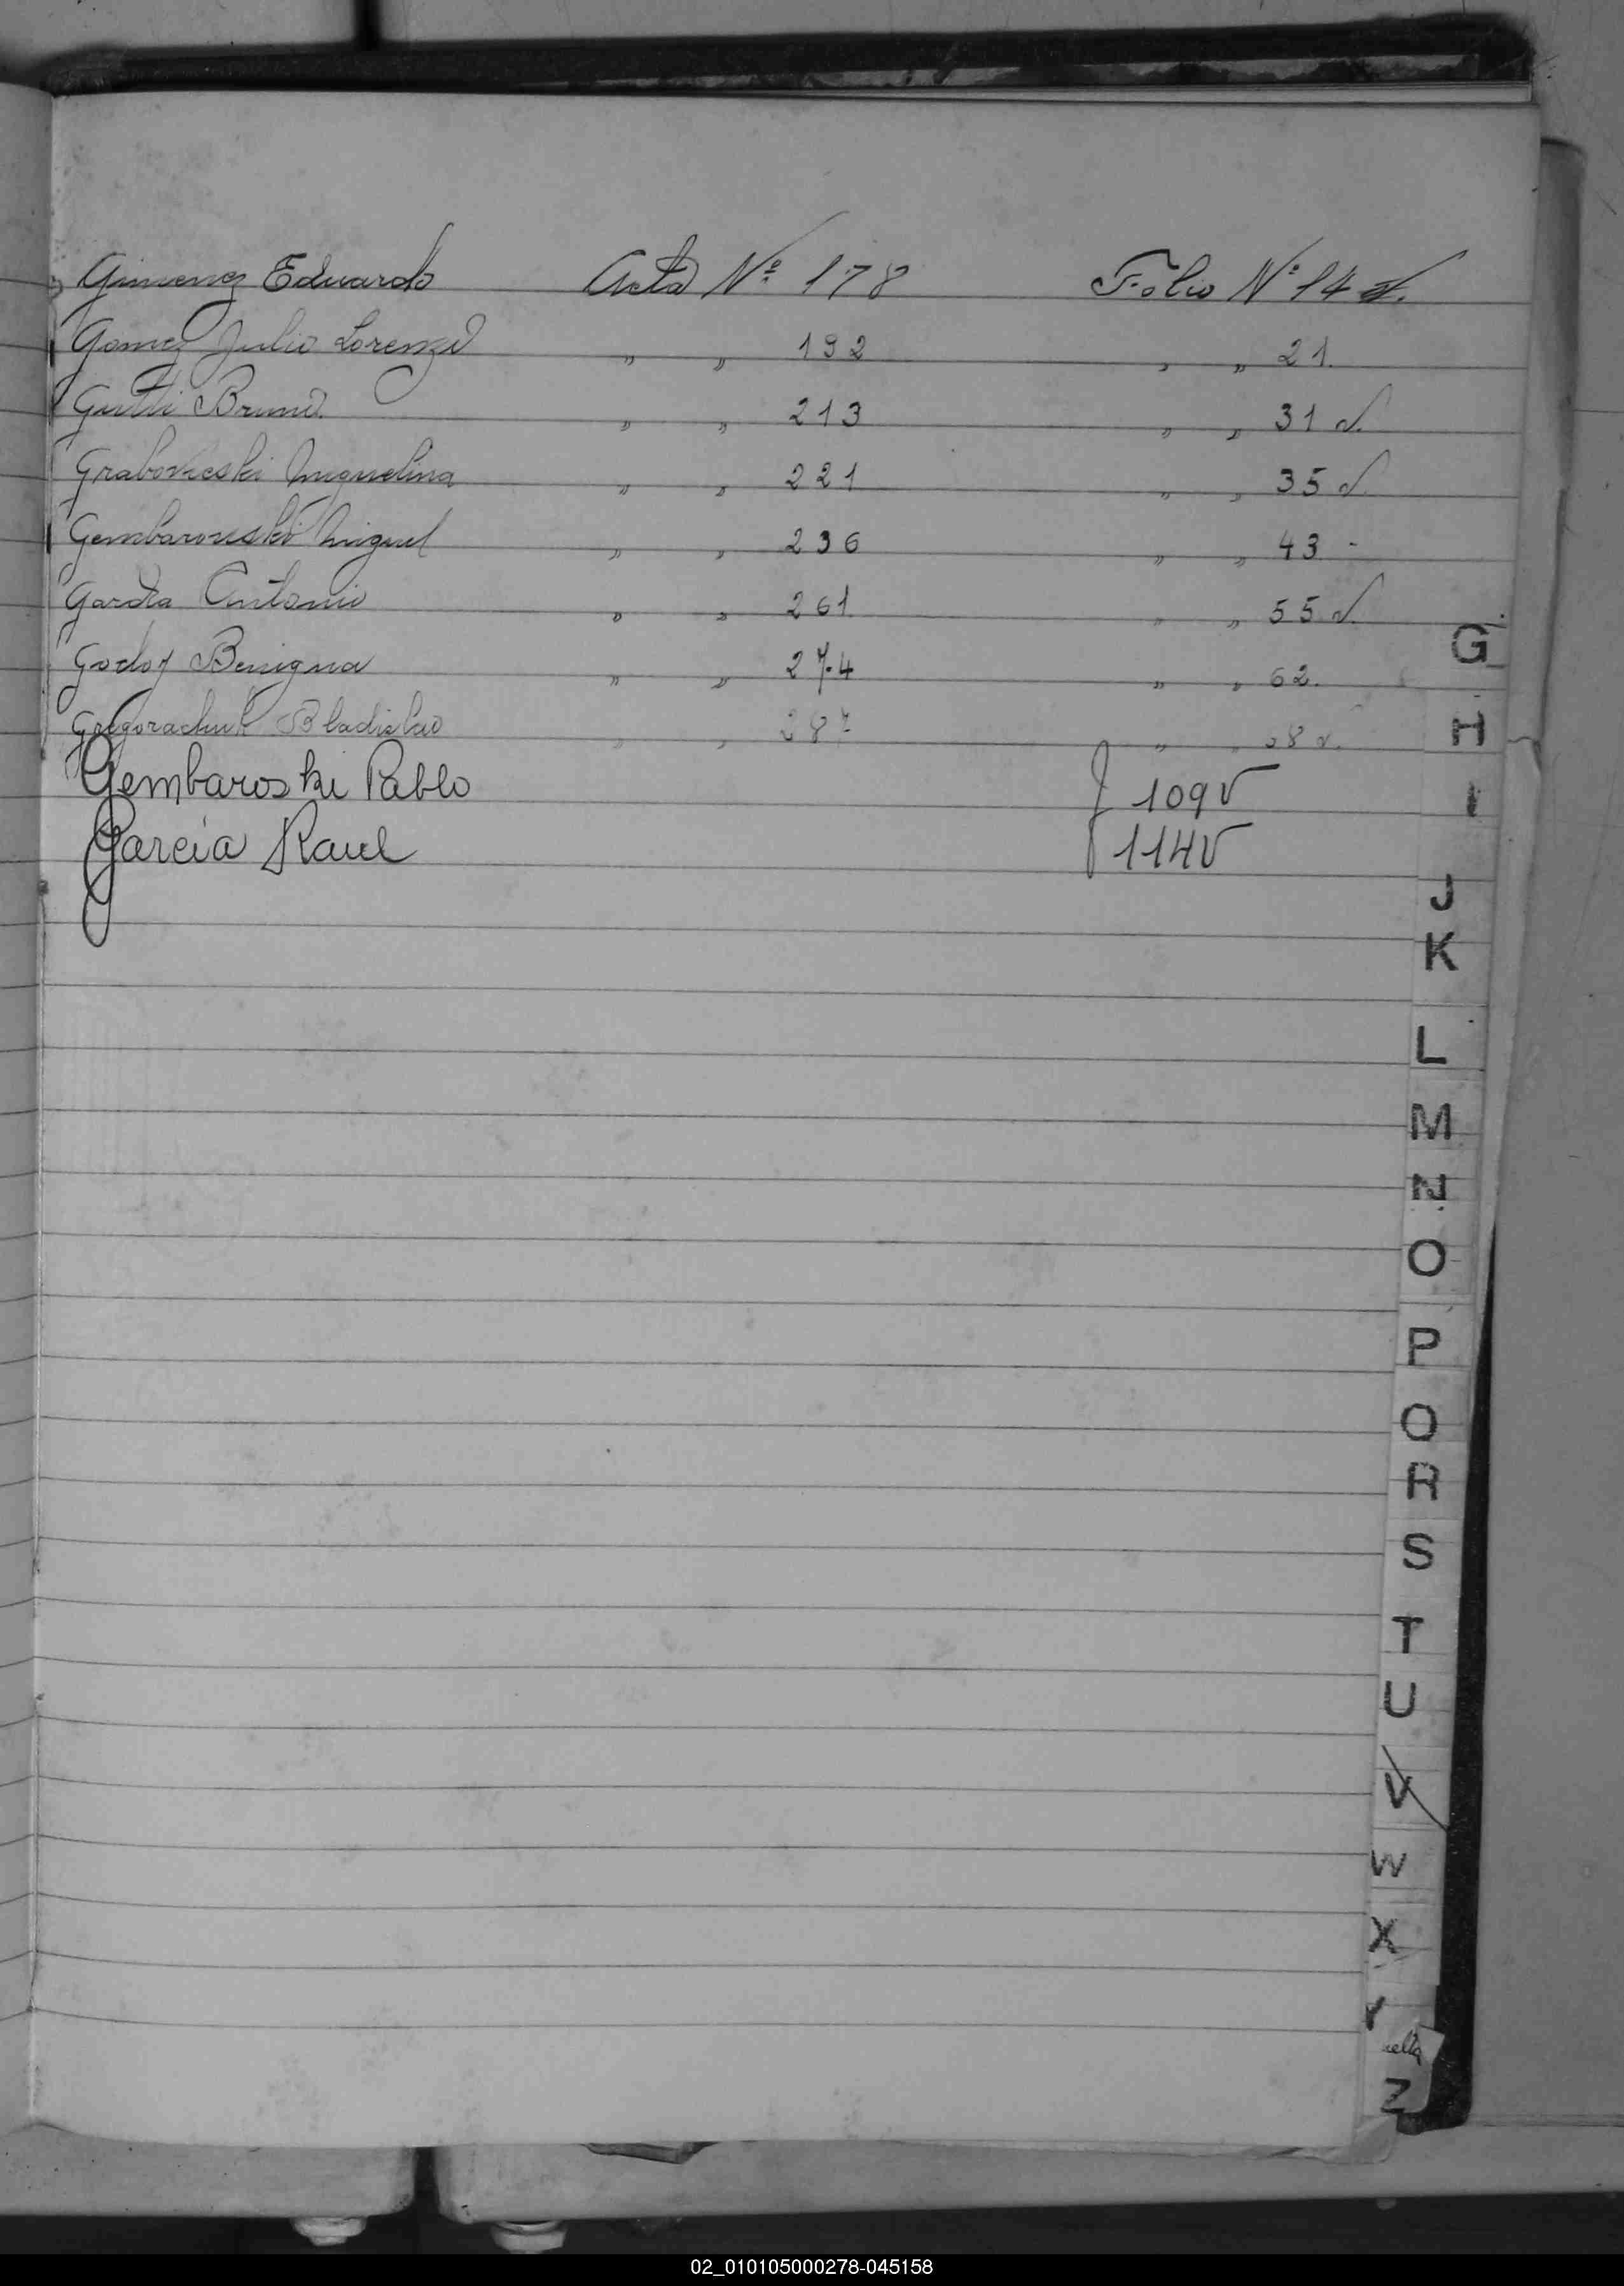 Gimenez Eduardo Acta Nº 178 Folio Nº 14 v.
Gomez Julio Lorenzo " " 192 " " 21.
Gutti Bruno. " " 213 " " 31 v.
Graboveski Miguelina " " 221 " " 35 v.
Gembarouski Miguel " " 236 " " 43 -
Garcia Antonio " " 261 " " 55 v.
Godoy Benigna " " 274 " " 62.
Gregorachuk Bladislao " " 287 " " 68 v.
Gembaroski Pablo f 109V
Garcia Raul f 114V
G
H
I
J
K
L
M
N
O
P
Q
R
S
T
U
V
W
X
Y
Z
02_010105000278-045158